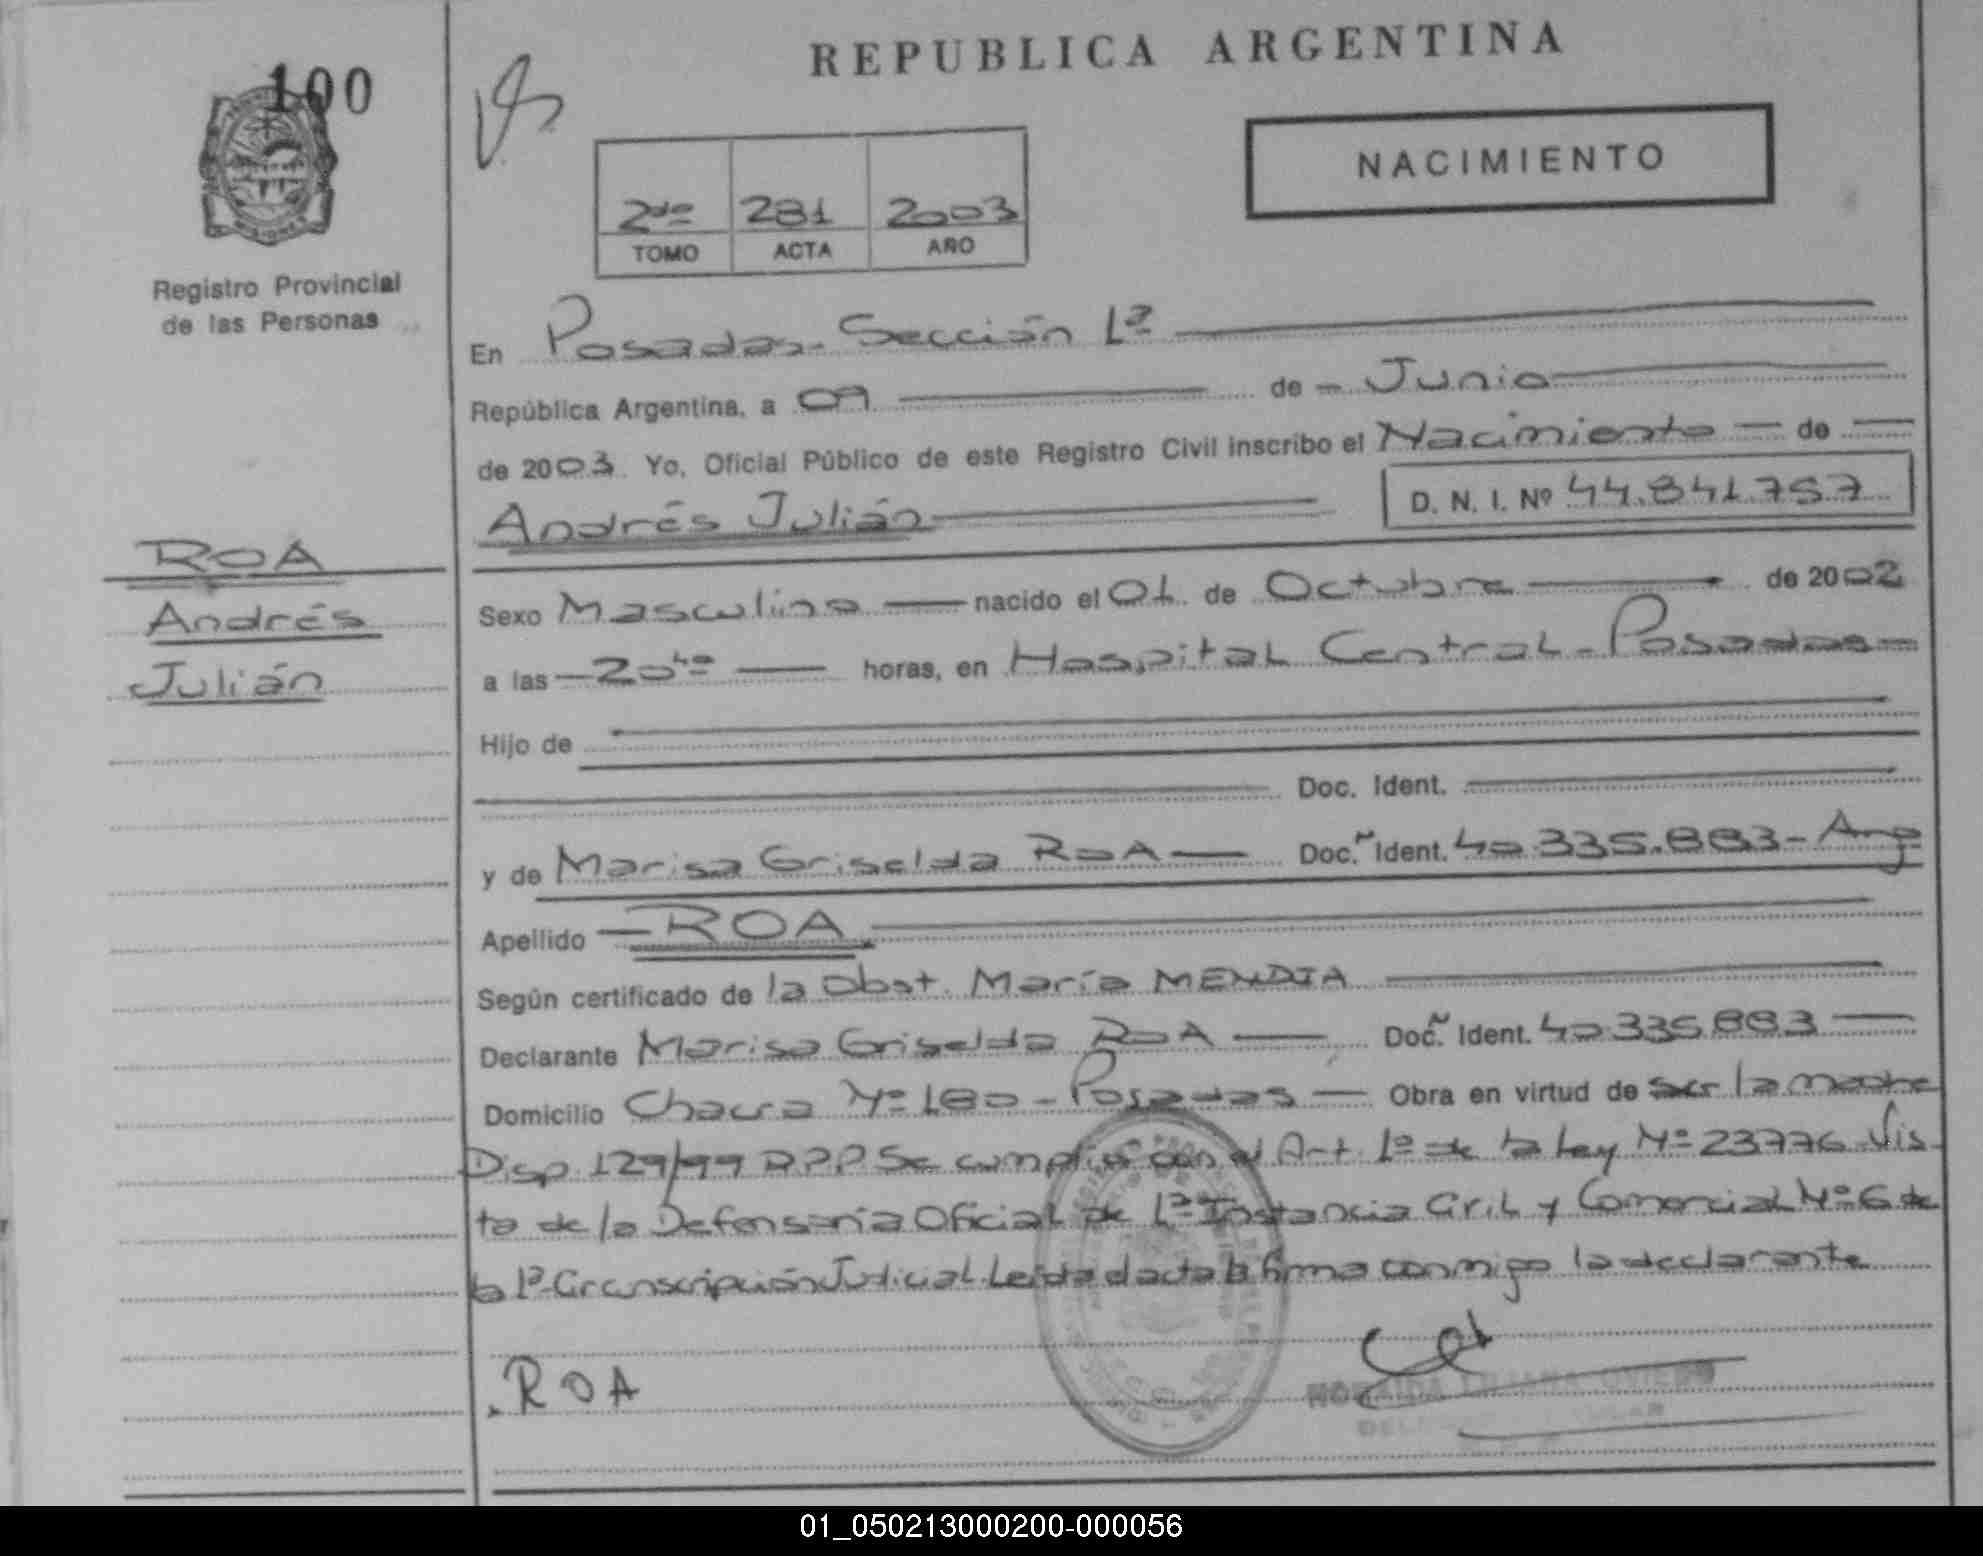 REPUBLICA ARGENTINA
100
NACIMIENTO
2do 281 2003
TOMO ACTA AÑO
Registro Provincial
de las Personas
En Posadas - Sección 1ª
República Argentina, a 09 de Junio
de 2003 Yo, Oficial Público de este Registro Civil inscribo el Nacimiento de
Andrés Julián D. N. I. Nº 44.841.757
ROA
Andrés
Julián
Sexo Masculino nacido el 01 de Octubre de 2002
a las 20 horas, en Hospital Central - Posadas
Hijo de
Doc. Ident.
y de Marisa Griselda ROA Doc. Ident. 40.335.883 - Arg
Apellido ROA
Según certificado de la Obst. María MENDIA
Declarante Marisa Griselda ROA Doc. Ident. 40.335.883
Domicilio Chacra Nº 180 - Posadas Obra en virtud de ser la madre
Disp. 129/99 RPP Se cumplió con el Art. 1º de la Ley Nº 23776 Vis-
to de la Defensoría Oficial de 1ª Instancia Civil y Comercial Nº 6 de
la 1ª Circunscripción Judicial. Leída el acta la firma conmigo la declarante
ROA
LILIANA OVIEDO
01_050213000200-000056